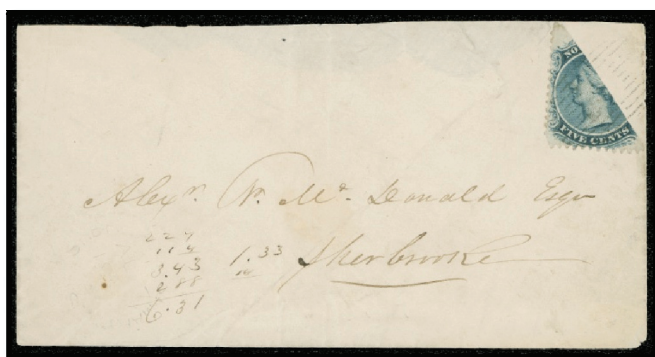 NO
FIVE CENTS
Alexr. N. Mc. Donald Esqr
Sherbrooke
1.33
3.43
288
6.31